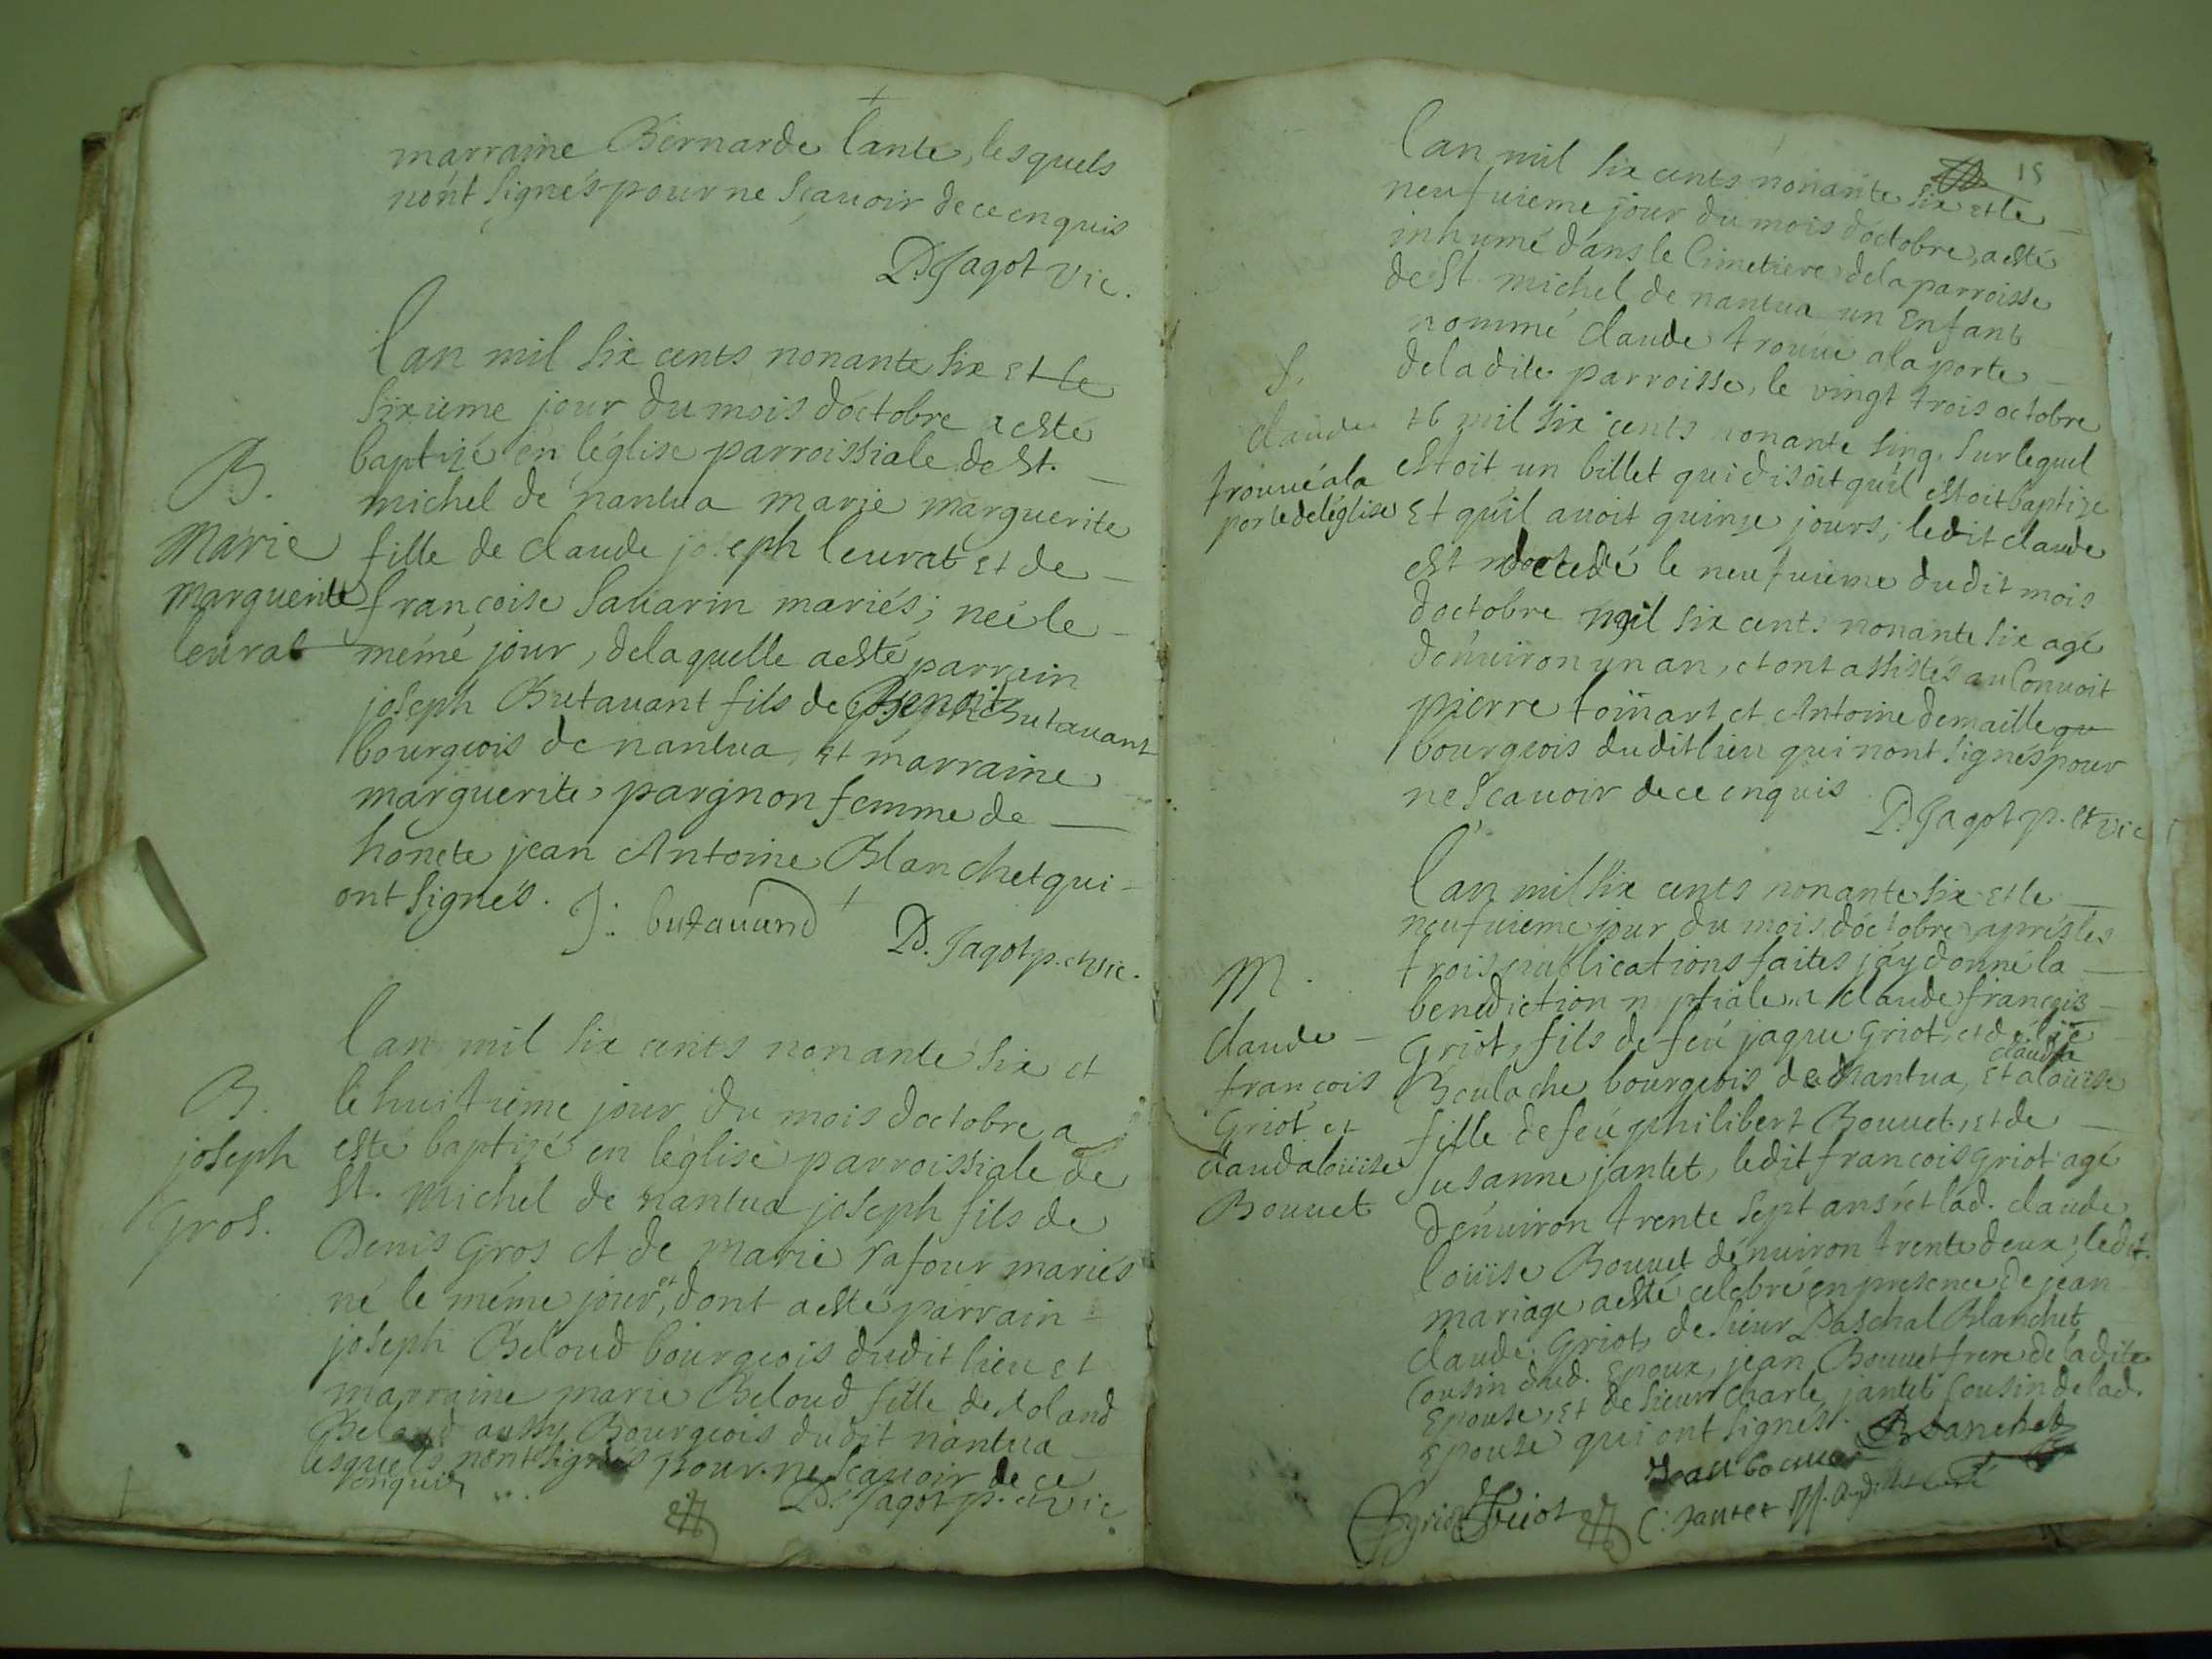 marraine Bernarde lante, lesquels
nónt signés pour ne sçauoir de ce enquis
D. Jagot Vic.
lan mil six cents nonante six et le
sixieme jour du mois dóctobre a esté
baptizé en léglise parroissiale de St.
michel de nantua marie marguerite
fille de claude joseph leurat et de
françoise sauarin mariés; neé le
mémé jour, delaquelle a esté parrain
joseph Butauant fils de Butauant
bourgeois de nantua, et marraine
marguerite pargnon femme de
honete jean Antoine Blanchet qui
ont signés.
J: butauand
D. Jagot p. et vic.
B.
Marie
marguerite
leurat
lan mil six cents nonante six et
le huitieme jour du mois doctobre a
esté baptizé en léglise parroissiale de
St. michel de nantua joseph fils de
Denis Gros et de marie rafour mariés
né le méme jour, et dont a esté parrain
joseph Beloud bourgeois dudit lieu et
marraine marie Beloud fille de Roland
Beloud aussy Bourgeois dudit nantua
lesquels nont signés pour ne sçauoir de ce
enquis
D. Jagot p. et vic
B.
joseph
Gros.
15
lan mil six cents nonante six et le
neufuieme jour du mois dóctobre, a esté
inhumé dans le Cimetiere dela parroisse
de St. michel de nantua un Enfant
nommé claude trouué a la porte
deladite parroisse, le vingt trois octobre
mil six cents nonante sinq, sur lequel
estoit un billet qui disoit quil estoit baptize
Et quil auoit quinze jours; ledit claude
est decedé le neufuieme dudit mois
doctobre mil six cents nonante six agé
dénuiron un an, et ont assistés au Conuoit
pierre toinart et Antoine demaille
bourgeois dudit lieu qui nont signés pour
ne scauoir de ce enquis
D. Jagot p. et vic
S.
claude
trouué a la
porte de léglise
lan mil six cents nonante six et le
neufuieme jour du mois dóctobre aprés les
trois publications faites jáy donné la
benediction nuptiale a claude françois
Griot, fils de feú jaque Griot, et délie
Beulache bourgeois de Nantua, Et a claudâ loüise
fille de feú philibert Bouuet, et de
Susanne jantet, ledit francois Griot agé
dénuiron trente sept ans et lad. claude
loüise Bouuet dénuiron trente deux; ledit.
mariage a esté celebré en presence de jean
claude Griot, de sieur Paschal Blanchet
Cousin dud. Epoux, jean Bouuet frere de ladite
Epouse, et de sieur Charle jantet Cousin de lad.
Epouse qui ont signés.
Blanchet
Jean bouuet
griot
Griot
C: Jantet
M.
claude
françois
Griot et
claudaloüise
Bouuet